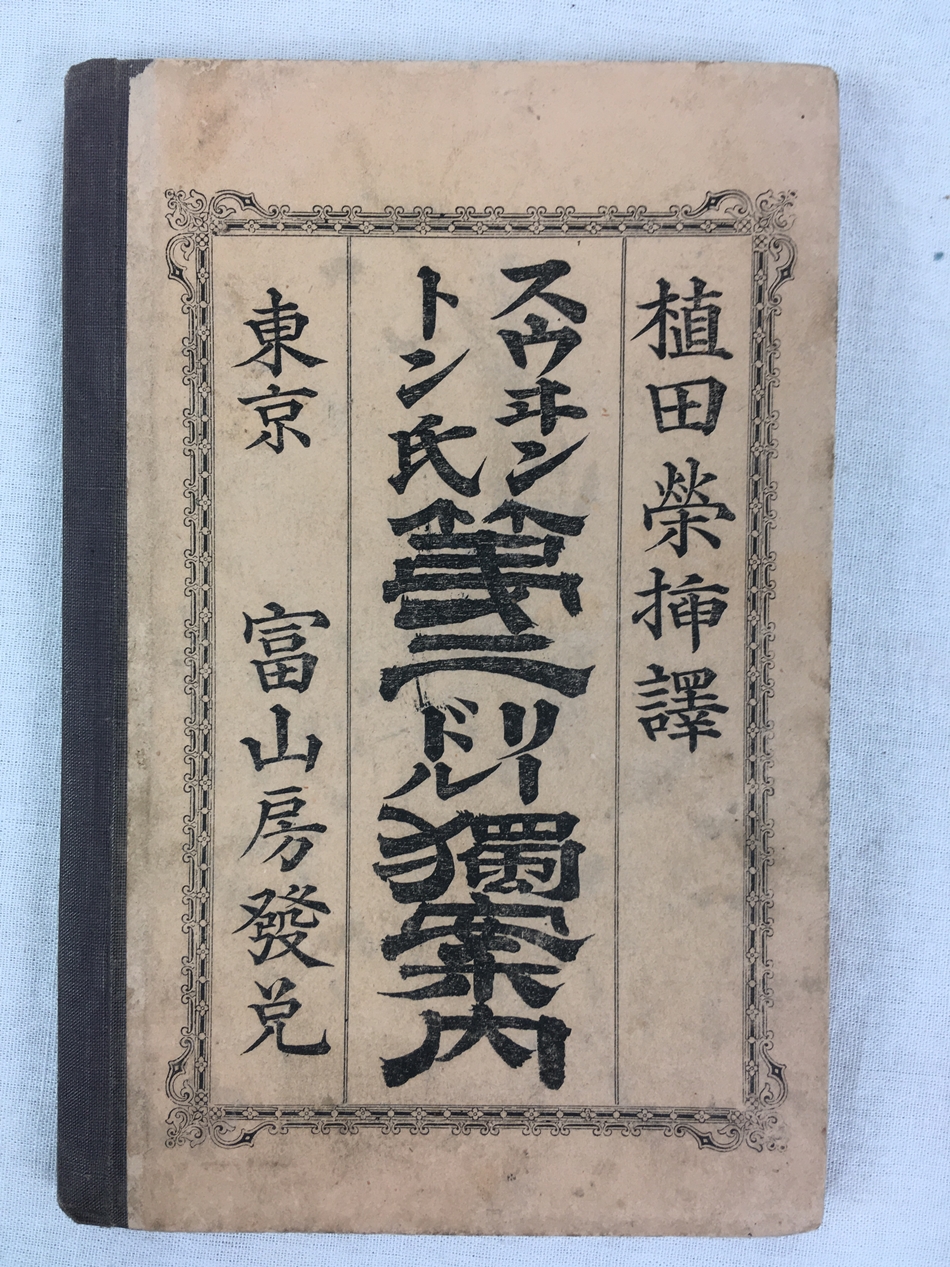 植田榮挿譯
スウヰントン氏第二リードル獨案内
東京 富山房發兌